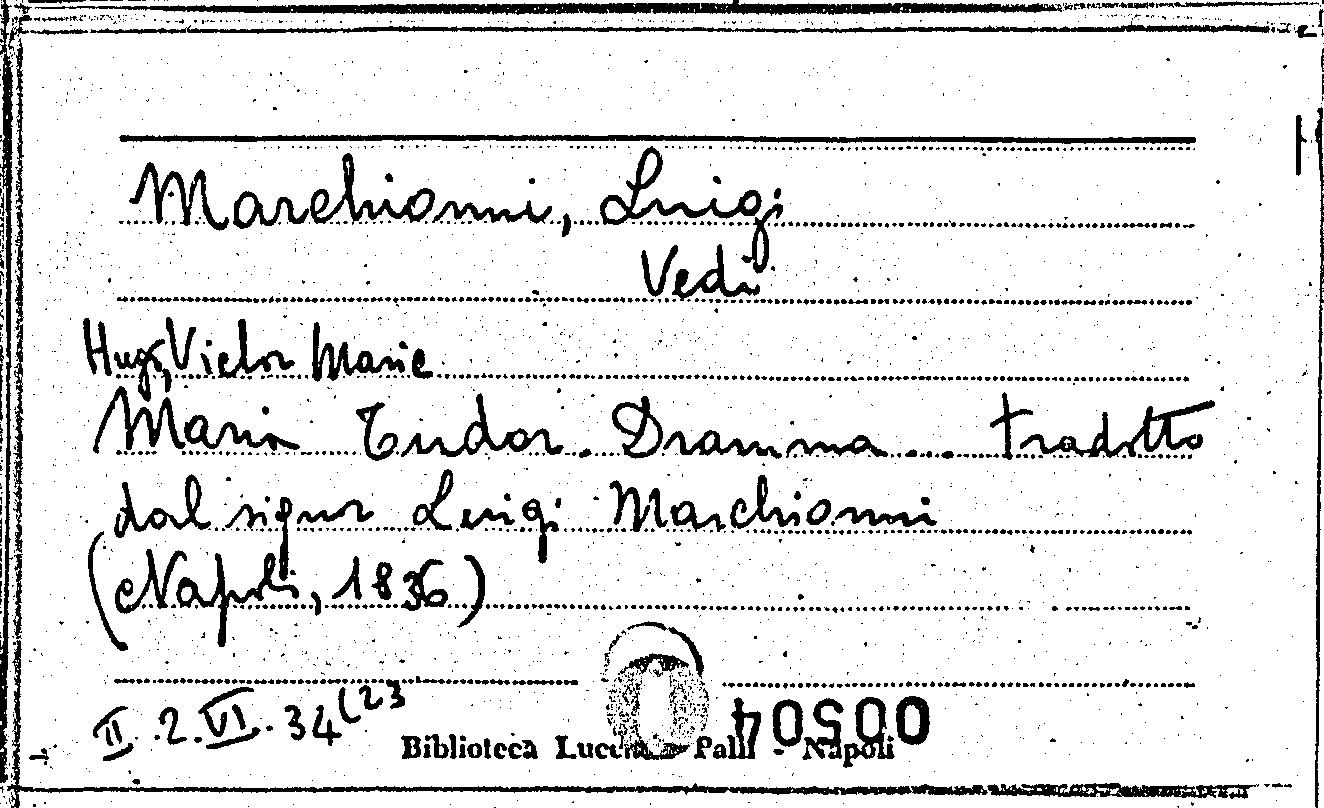 Marchionni, Luigi
Vedi
Hugo, Victor Marie
Maria Tudor. Dramma ... tradotto
dal signor Luigi Marchionni
(Napoli, 1836)
II.2.VI.34(23
00504
Biblioteca Lucchesi Palli - Napoli